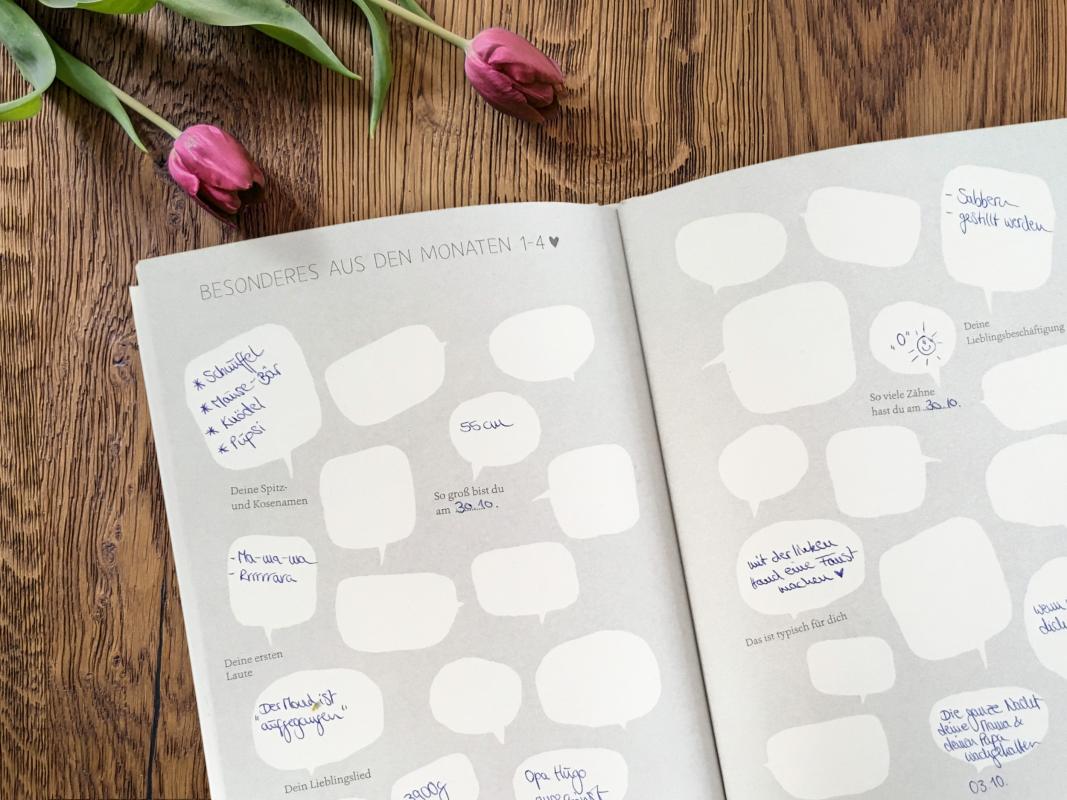 BESONDERES AUS DEN MONATEN 1-4 ♥
* Schnüffel
* Mäuse-Bär
* Knödel
* Pupsi
Deine Spitz-
und Kosenamen
55 cm
So groß bist du
am 30.10.
- Ma-ma-ma
- Rrrrrara
Deine ersten
Laute
"Der Mond ist
aufgegangen"
Dein Lieblingslied
3900g
Opa Hugo
- Sabbern
- gestillt werden
Deine
Lieblingsbeschäftigung
"0"
So viele Zähne
hast du am 30.10.
mit der linken
Hand eine Faust
machen ♥
Das ist typisch für dich
wenn
dich
Die ganze Nacht
deine Mama &
deinen Papa
wachgehalten
03.10.